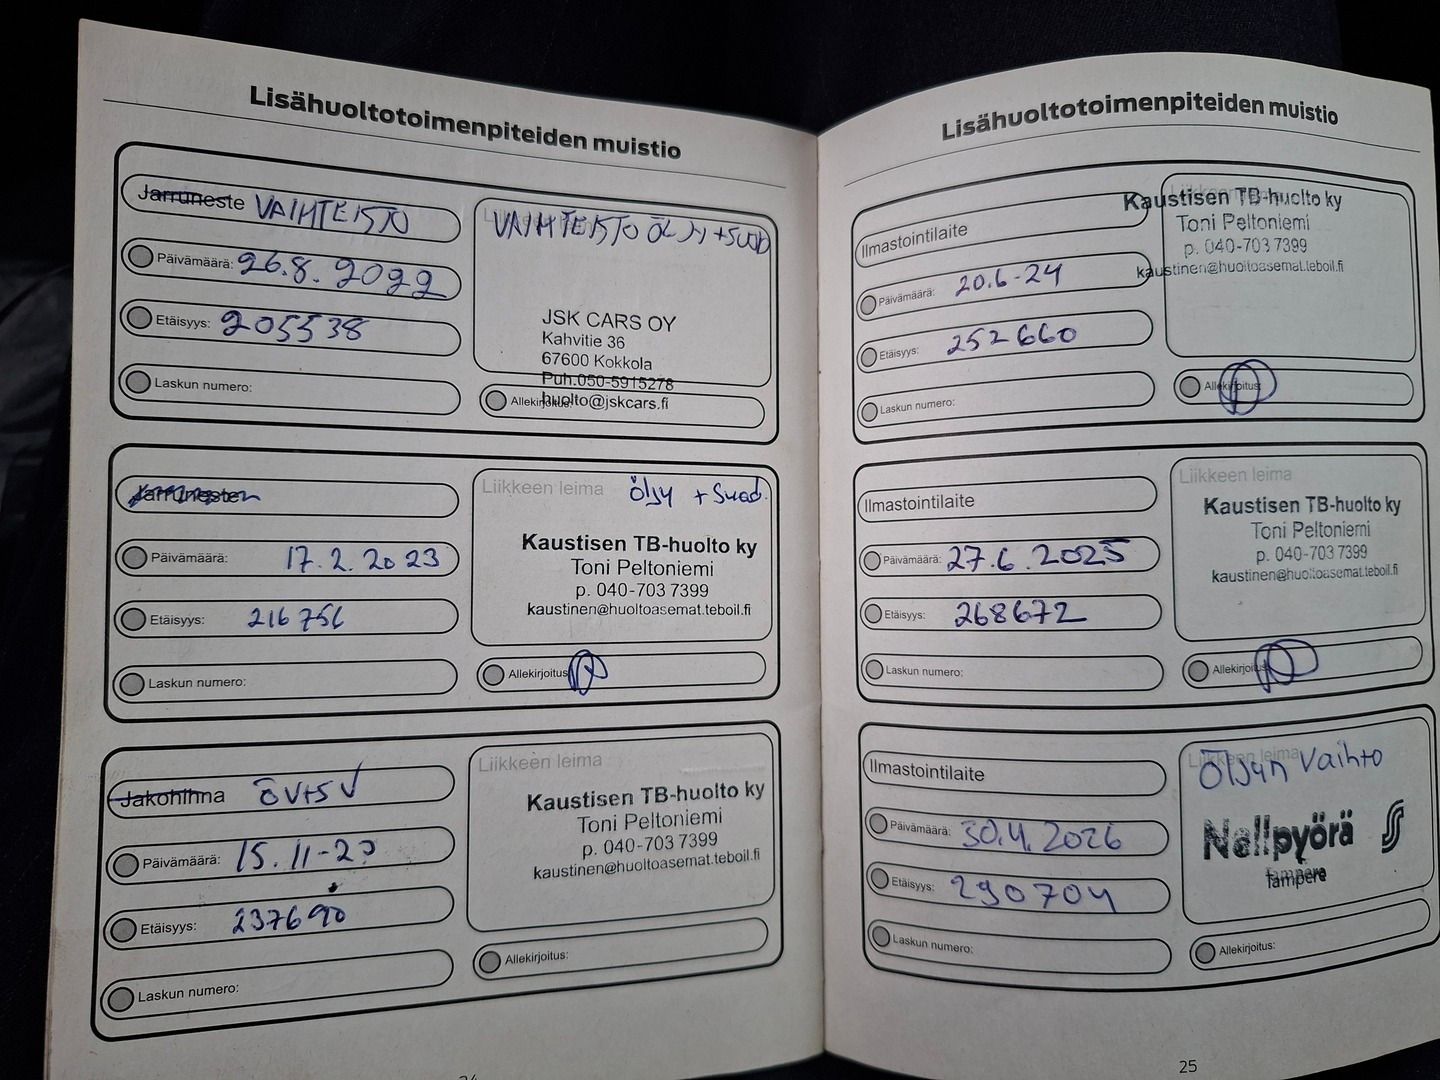 Lisähuoltotoimenpiteiden muistio
Jarruneste VAIHTEISTO
Päivämäärä: 26.8.2022
Etäisyys: 205538
Laskun numero:
VAIHTEISTO ÖLJY +SUOD
JSK CARS OY
Kahvitie 36
67600 Kokkola
Puh.050-5915278
huolto@jskcars.fi
Allekirjoitus:
Jarruneste
Päivämäärä: 17.2.2023
Etäisyys: 216756
Laskun numero:
Liikkeen leima Öljy + Suod.
Kaustisen TB-huolto ky
Toni Peltoniemi
p. 040-703 7399
kaustinen@huoltoasemat.teboil.fi
Allekirjoitus:
Jakohihna ÖV+SV
Päivämäärä: 15.11-23
Etäisyys: 237690
Laskun numero:
Liikkeen leima
Kaustisen TB-huolto ky
Toni Peltoniemi
p. 040-703 7399
kaustinen@huoltoasemat.teboil.fi
Allekirjoitus:
Lisähuoltotoimenpiteiden muistio
Ilmastointilaite
Päivämäärä: 20.6-24
Etäisyys: 252660
Laskun numero:
Liikkeen leima
Kaustisen TB-huolto ky
Toni Peltoniemi
p. 040-703 7399
kaustinen@huoltoasemat.teboil.fi
Allekirjoitus:
Ilmastointilaite
Päivämäärä: 27.6.2025
Etäisyys: 268672
Laskun numero:
Liikkeen leima
Kaustisen TB-huolto ky
Toni Peltoniemi
p. 040-703 7399
kaustinen@huoltoasemat.teboil.fi
Allekirjoitus:
Ilmastointilaite
Päivämäärä: 30.4.2026
Etäisyys: 290704
Laskun numero:
Liikkeen leima
Öljyn Vaihto
Nelipyörä
Tampere
Allekirjoitus:
25